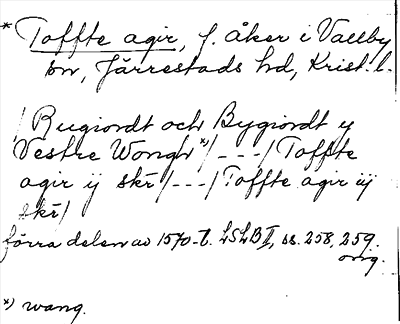 * Toffte agir, f. åker i Vallby
sn, Järrestads hd, Krist. l.
/ Rugiordt och Bygiordt y
Vestre Wongh *) / - - - / Toffte
agir ij skr / - - - / Toffte agir iij
skr /
förra delen av 1570-t. LSLB II, ss. 258, 259.
orig.
*) wang.